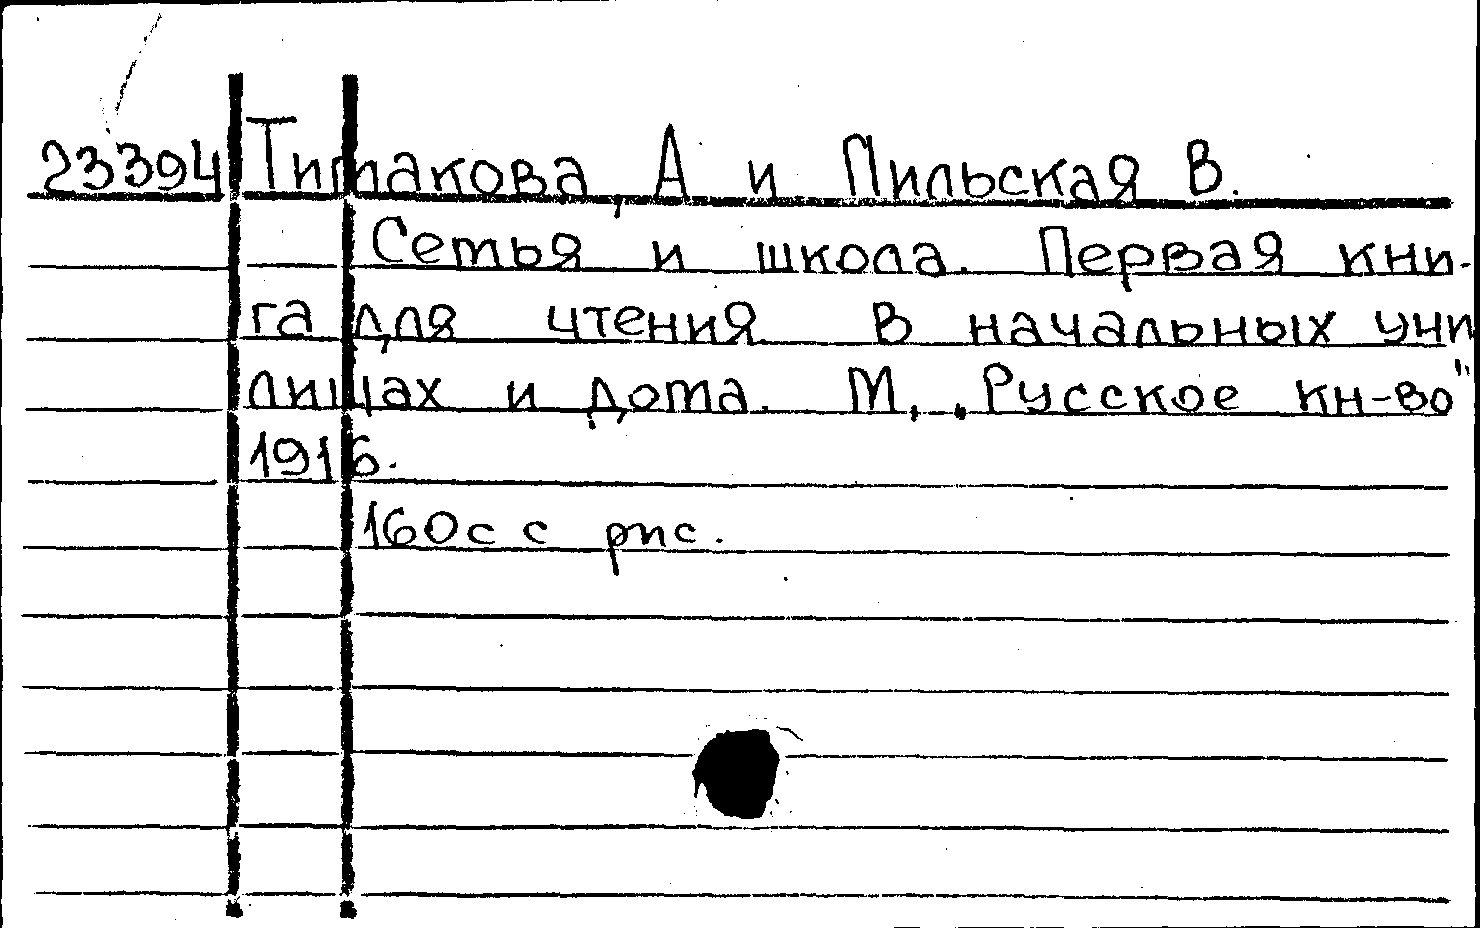 23394 Тимакова, А и Пильская В.
Семья и школа. Первая кни-
га для чтения в начальных учи
лищах и дома. М., „Русское кн-во"
1916.
160с с рис.